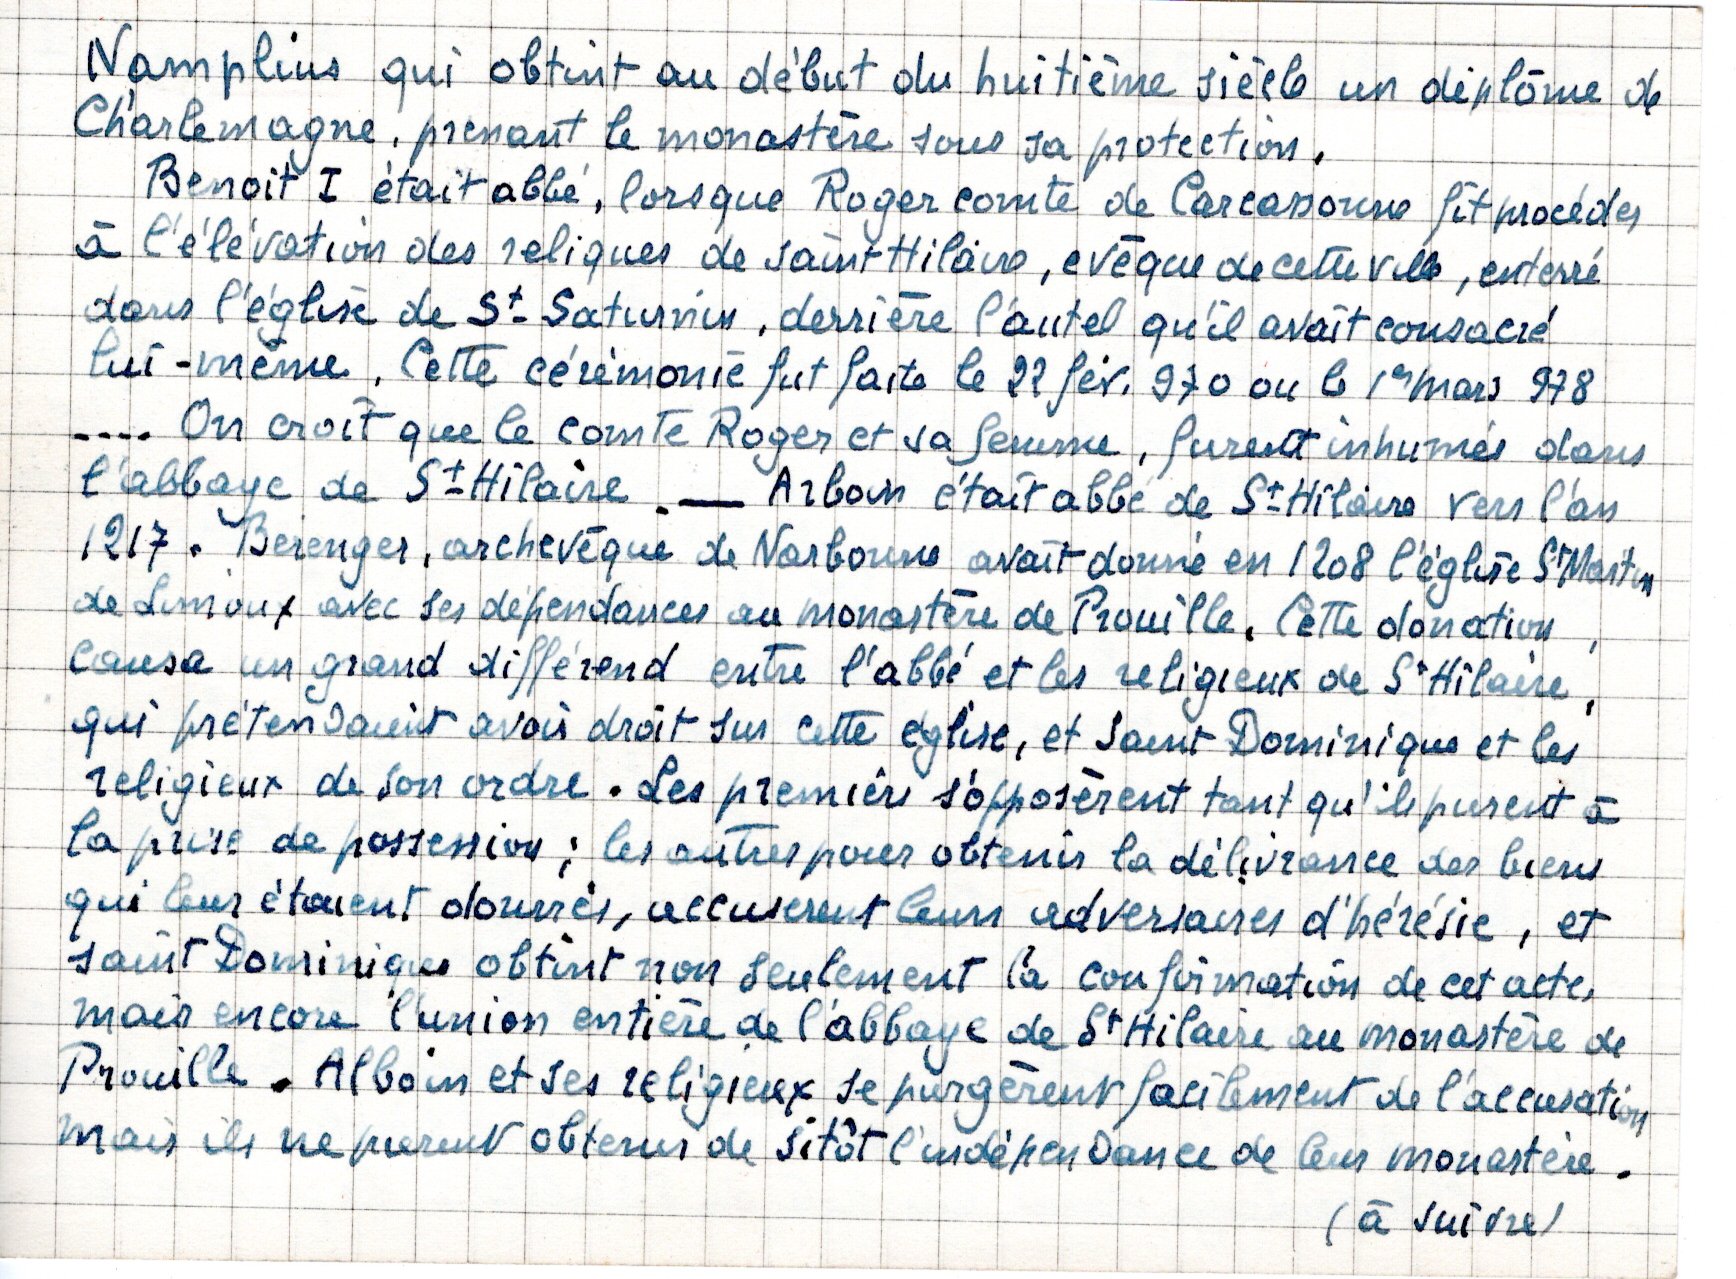 Namplius qui obtint au début du huitième siècle un diplôme de
Charlemagne, prenant le monastère sous sa protection.
Benoit I était abbé, lorsque Roger comte de Carcassonne fit procéder
à l'élévation des reliques de saint Hilaire, evêque de cette ville, enterré
dans l'église de St Saturnin, derrière l'autel qu'il avait consacré
lui-même. Cette cérémonie fut faite le 22 fév. 970 ou le 1er mars 978
.... On croit que le comte Roger et sa femme, furent inhumés dans
l'abbaye de St-Hilaire. — Arboin était abbé de St-Hilaire vers l'an
1217. Bérenger, archevêque de Narbonne avait donné en 1208 l'église St Martin
de Limoux avec ses dépendances au monastère de Prouille. Cette donation,
causa un grand différend entre l'abbé et les religieux de St Hilaire,
qui prétendaient avoir droit sur cette eglise, et saint Dominique et les
religieux de son ordre. Les premiers s'opposèrent tant qu'ils purent à
la prise de possession; les autres pour obtenir la délivrance des biens
qui leur étaient donnés, accuserent leurs adversaires d'hérésie, et
saint Dominique obtint non seulement la confirmation de cet acte,
mais encore l'union entière de l'abbaye de St Hilaire au monastère de
Prouille. Alboin et ses religieux se purgèrent facilement de l'accusation
mais ils ne purent obtenir de sitôt l'indépendance de leur monastère.
(à suivre)